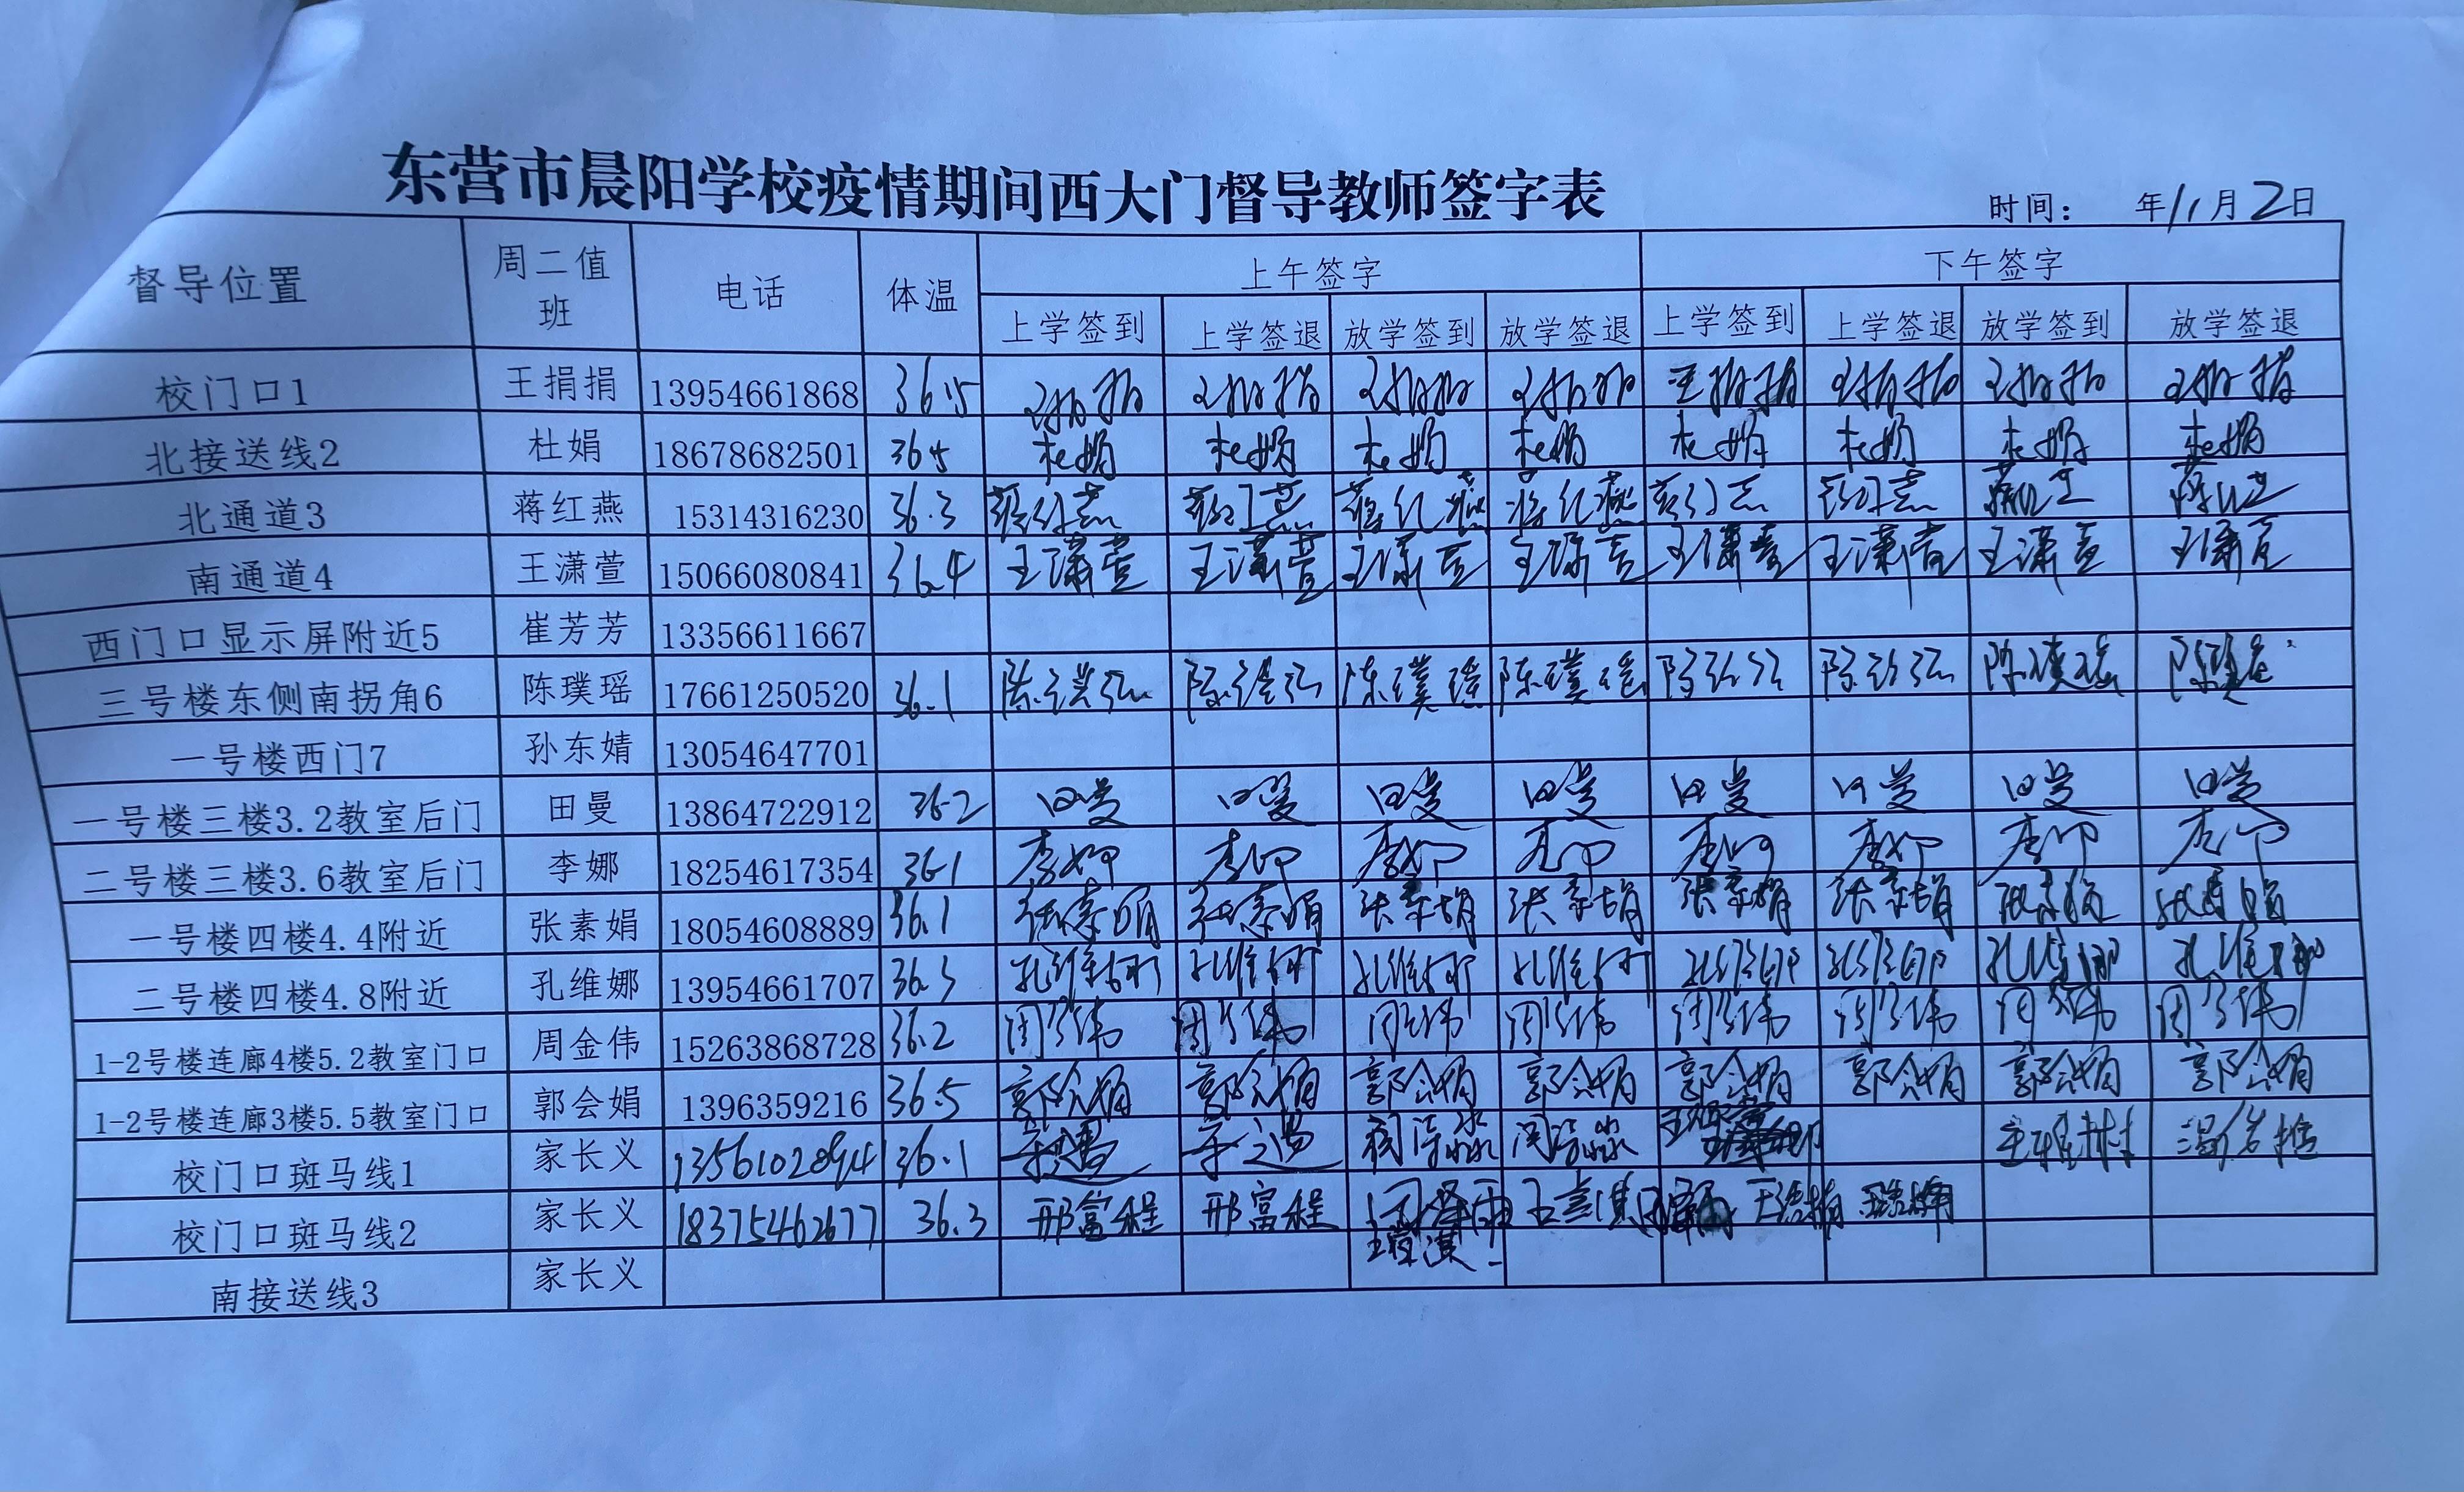 东营市晨阳学校疫情期间西大门督导教师签字表
时间： 年11月2日
督导位置 周二值班 电话 体温 上午签字 下午签字
上学签到 上学签退 放学签到 放学签退 上学签到 上学签退 放学签到 放学签退
校门口1 王捐捐 13954661868 36.5 王捐捐 王捐捐 王捐捐 王捐捐 王捐捐 王捐捐 王捐捐 王捐捐
北接送线2 杜娟 18678682501 36.5 杜娟 杜娟 杜娟 杜娟 杜娟 杜娟 杜娟 杜娟
北通道3 蒋红燕 15314316230 36.3 蒋红燕 蒋红燕 蒋红燕 蒋红燕 蒋红燕 蒋红燕 蒋红燕 蒋红燕
南通道4 王潇萱 15066080841 36.4 王潇萱 王潇萱 王潇萱 王潇萱 王潇萱 王潇萱 王潇萱 王潇萱
西门口显示屏附近5 崔芳芳 13356611667
三号楼东侧南拐角6 陈璞瑶 17661250520 36.1 陈璞瑶 陈璞瑶 陈璞瑶 陈璞瑶 陈璞瑶 陈璞瑶 陈璞瑶 陈璞瑶
一号楼西门7 孙东婧 13054647701
一号楼三楼3.2教室后门 田曼 13864722912 36.2 田曼 田曼 田曼 田曼 田曼 田曼 田曼 田曼
二号楼三楼3.6教室后门 李娜 18254617354 36.1 李娜 李娜 李娜 李娜 李娜 李娜 李娜 李娜
一号楼四楼4.4附近 张素娟 18054608889 36.1 张素娟 张素娟 张素娟 张素娟 张素娟 张素娟 张素娟 张素娟
二号楼四楼4.8附近 孔维娜 13954661707 36.3 孔维娜 孔维娜 孔维娜 孔维娜 孔维娜 孔维娜 孔维娜 孔维娜
1-2号楼连廊4楼5.2教室门口 周金伟 15263868728 36.2 周金伟 周金伟 周金伟 周金伟 周金伟 周金伟 周金伟 周金伟
1-2号楼连廊3楼5.5教室门口 郭会娟 1396359216 36.5 郭会娟 郭会娟 郭会娟 郭会娟 郭会娟 郭会娟 郭会娟 郭会娟
校门口斑马线1 家长义 1356102894 36.1
校门口斑马线2 家长义 18375462677 36.3 邢富程 邢富程
南接送线3 家长义